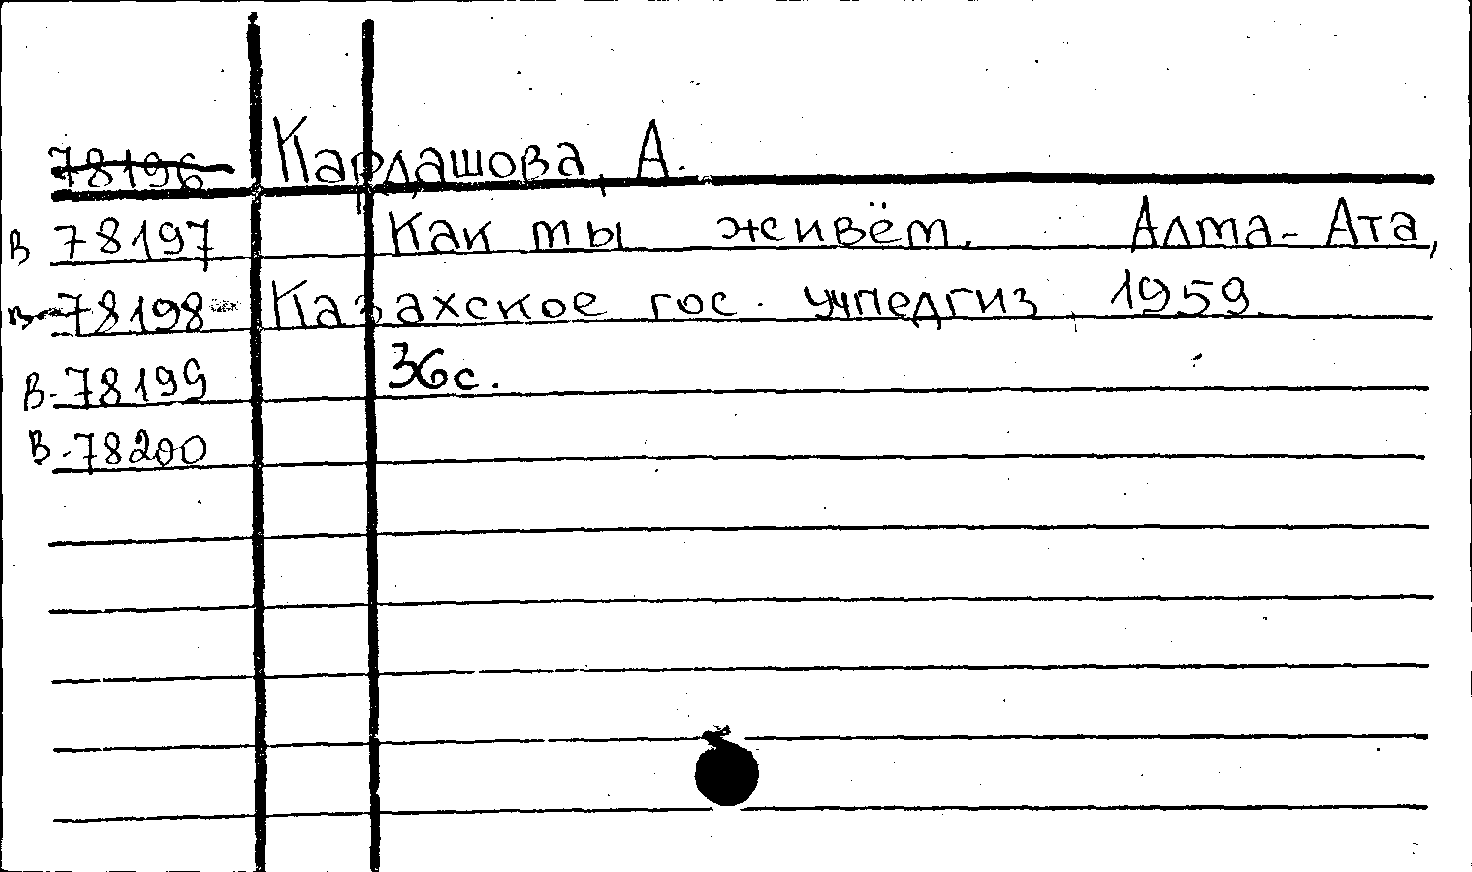 78196 Кардашова, А.
В 78197 Как ты живём. Алма-Ата,
В-78198 Казахское гос. учпедгиз, 1959.
В-78199 36с.
В-78200